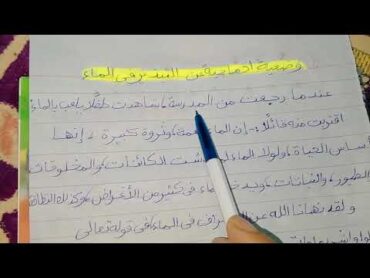 وضعية ادماجية عن التبذير في الماء
عندما رجعت من المدرسة، شاهدت طفلا يلعب بالماء
اقتربت منه قائلا: إن الماء نعمة، وثروة كبيرة، إنها
أساس الحياة، ولولا الماء لما عاشت الكائنات والمخلوقات
الطيور، والنباتات، ويدخل الماء في كثير من الأغراض، وكذلك النظافة
ولقد نهانا الله عن الإسراف في الماء، في قوله تعالى